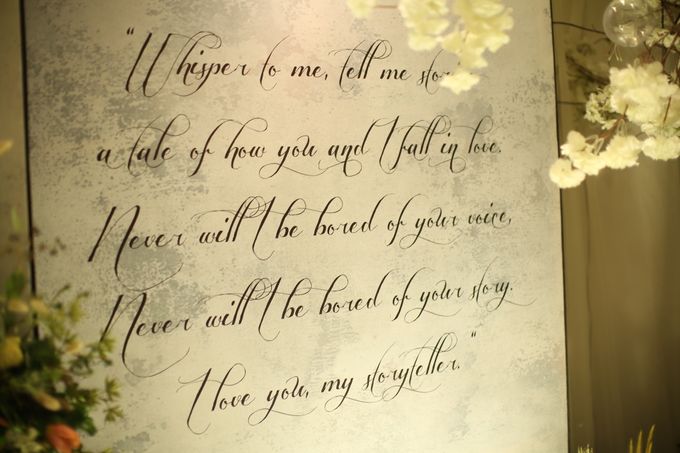 "Whisper to me, tell me
a tale of how you and I fall in love.
Never will I be bored of your voice,
Never will I be bored of your story.
I love you, my storyteller."